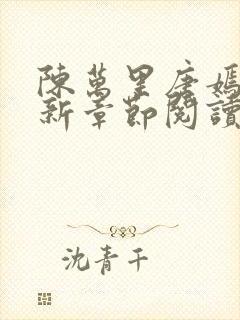 陳萬里唐媽
新章節閱讀
沈青干